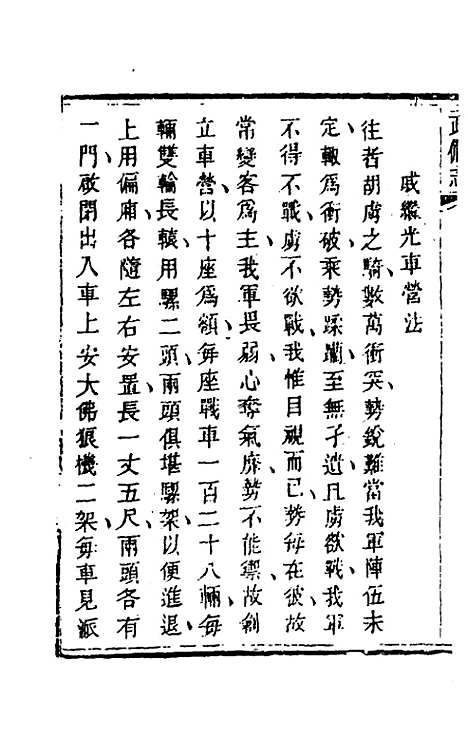 武備志
戚繼光車營法
往者胡虜之騎數萬衝突勢銳難當我軍陣伍未
定輒爲衝破乘勢蹂躪至無孑遺且虜欲戰我軍
不得不戰虜不欲戰我惟目視而已勢每在彼故
常變客爲主我軍畏弱心奪氣靡勢不能禦故創
立車營以十座爲額每座戰車一百二十八輛每
輛雙輪長轅用騾二頭兩頭俱堪騾架以便進退
上用偏廂各隨左右安置長一丈五尺兩頭各有
一門啟閉出入車上安大佛狼機二架每車見派